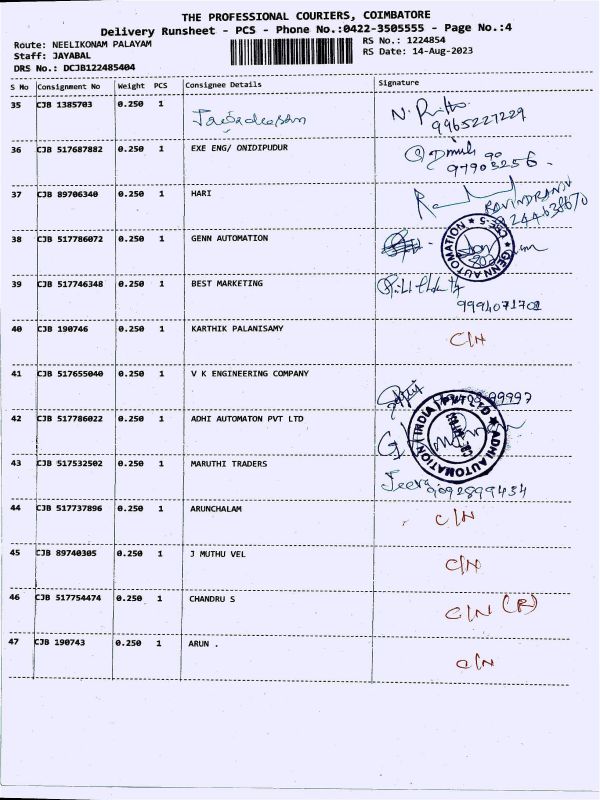 THE PROFESSIONAL COURIERS, COIMBATORE
Delivery Runsheet - PCS - Phone No.:0422-3505555 - Page No.:4
Route: NEELIKONAM PALAYAM
RS No.: 1224854
Staff: JAYABAL
RS Date: 14-Aug-2023
DRS No.: DCJB122485404
S No Consignment No Weight PCS Consignee Details Signature
35 CJB 1385703 0.250 1
9965227229
36 CJB 517687882 0.250 1 EXE ENG/ ONIDIPUDUR
37 CJB 89706340 0.250 1 HARI
RAVINDRAN
38 CJB 517786072 0.250 1 GENN AUTOMATION
GENN AUTOMATION CBE-5
39 CJB 517746348 0.250 1 BEST MARKETING
40 CJB 190746 0.250 1 KARTHIK PALANISAMY C/N
41 CJB 517655040 0.250 1 V K ENGINEERING COMPANY
42 CJB 517786022 0.250 1 ADHI AUTOMATON PVT LTD
ADHI AUTOMATION INDIA PVT LTD
43 CJB 517532502 0.250 1 MARUTHI TRADERS
Jeeva 9092899434
44 CJB 517737896 0.250 1 ARUNCHALAM C/N
45 CJB 89740305 0.250 1 J MUTHU VEL C/N
46 CJB 517754474 0.250 1 CHANDRU S C/N (R)
47 CJB 190743 0.250 1 ARUN . C/N